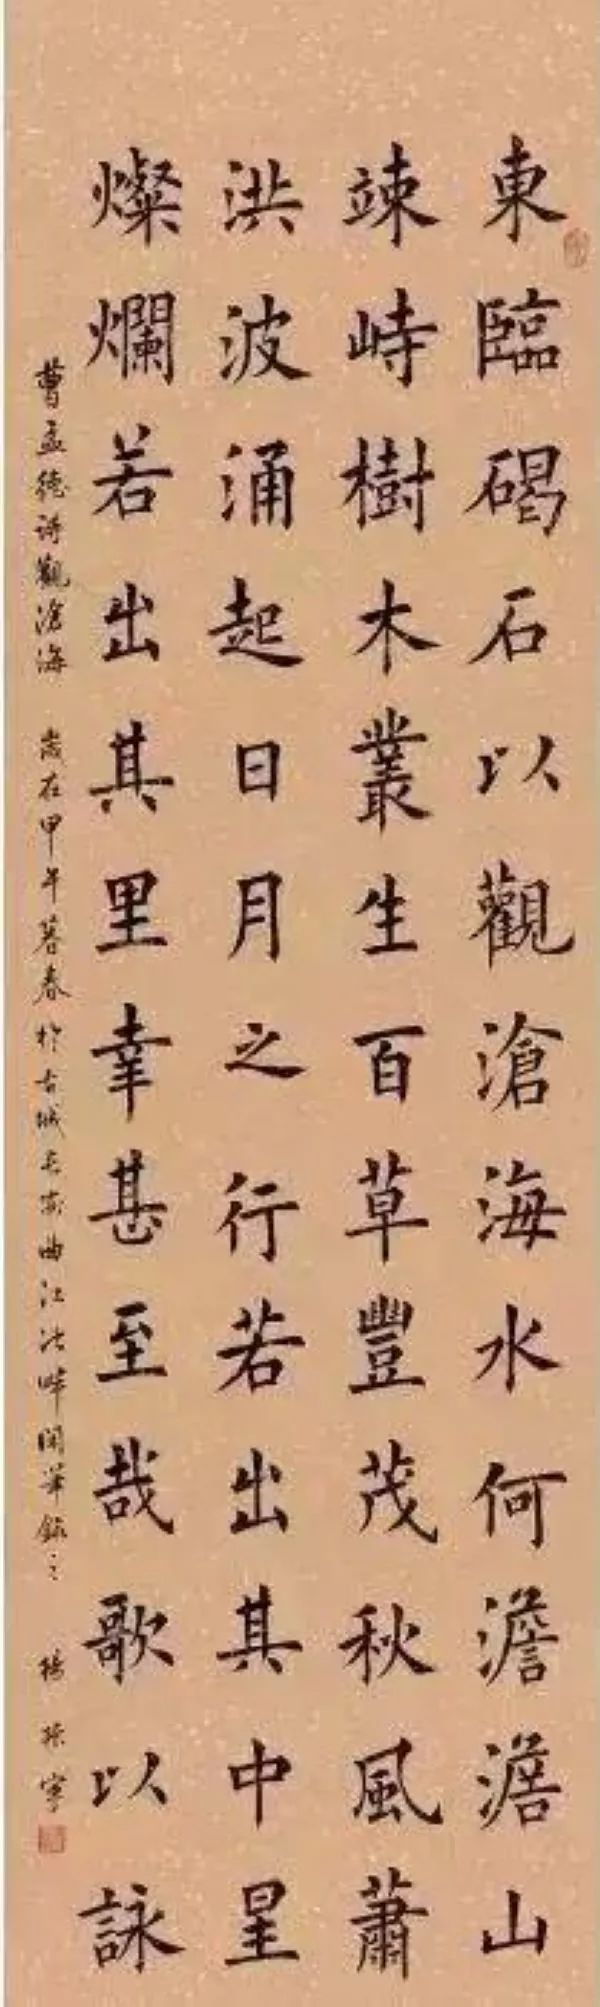 東臨碣石以觀滄海水何澹澹山
竦峙樹木叢生百草豐茂秋風蕭
洪波涌起日月之行若出其中星
燦爛若出其里幸甚至哉歌以詠
曹孟德詩觀滄海 歲在甲午暮春於古城長安曲江池畔閑筆錄之 楊